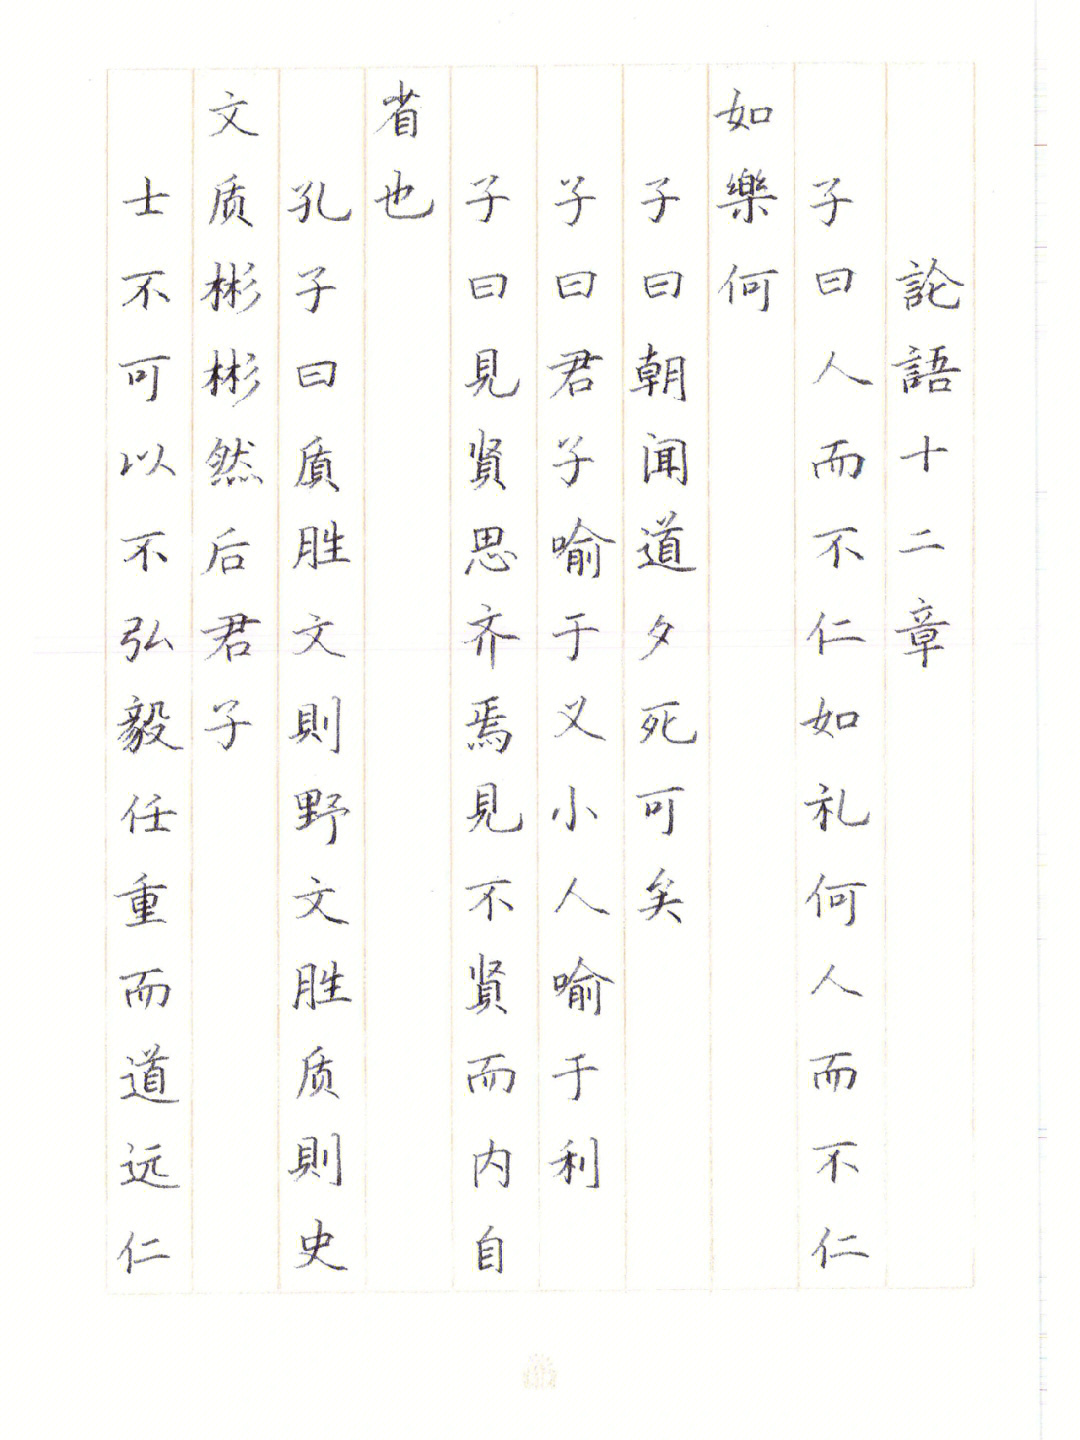 論語十二章
子曰人而不仁如礼何人而不仁
如樂何
子曰朝闻道夕死可矣
子曰君子喻于义小人喻于利
子曰見賢思齐焉見不賢而内自
省也
孔子曰质胜文則野文胜质則史
文质彬彬然后君子
士不可以不弘毅任重而道远仁